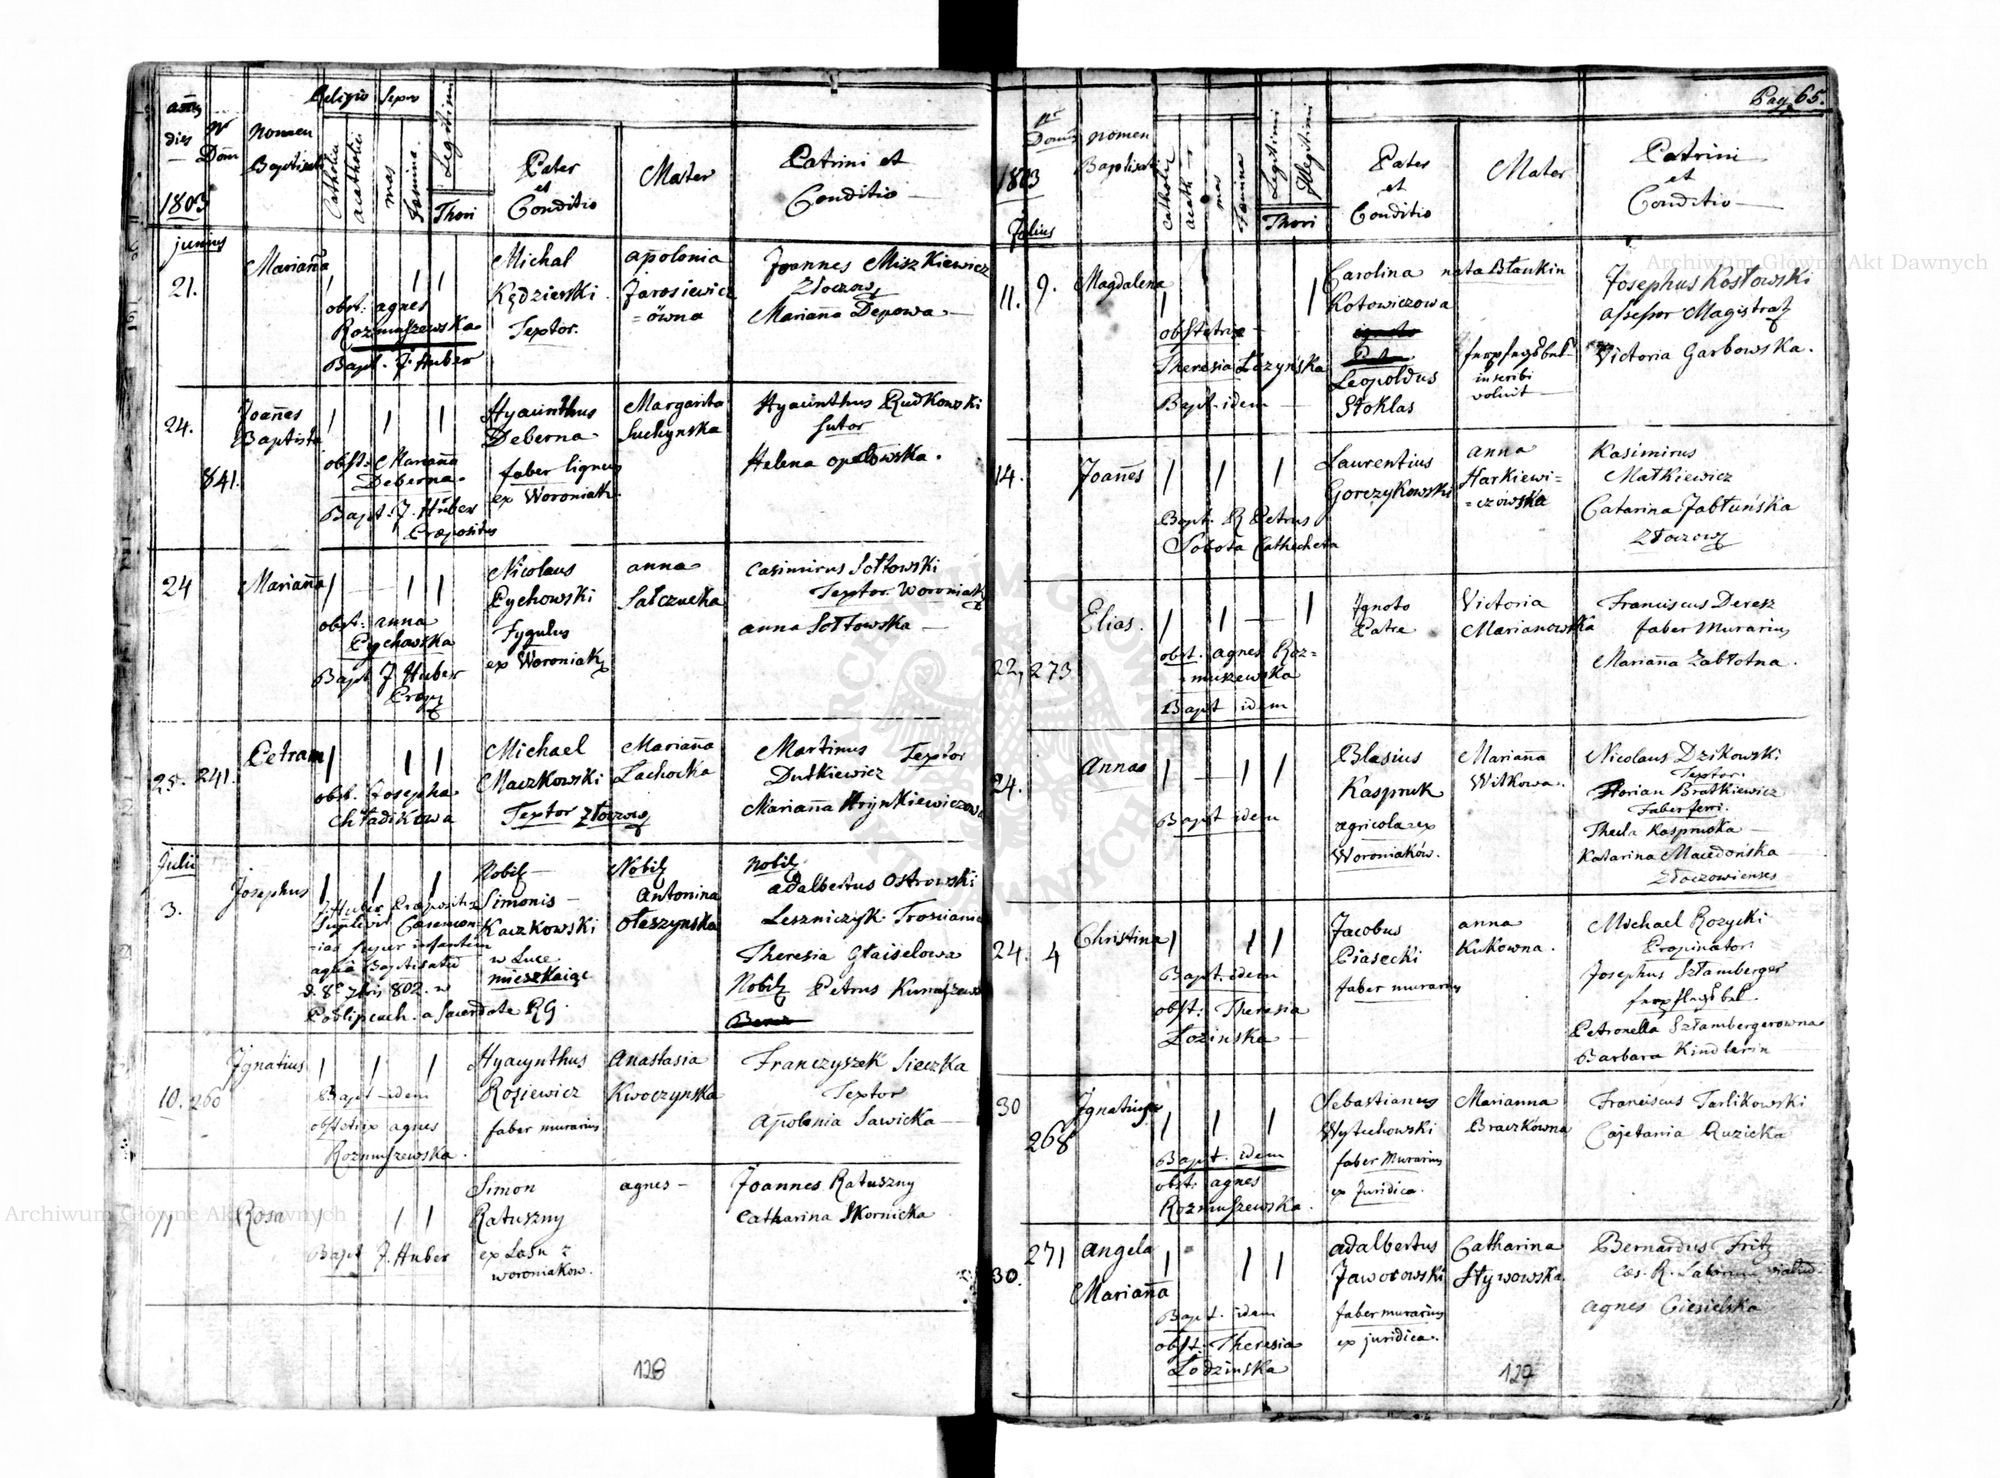 Religio Sexus
anno
dies
1803
Nr
Dom
Nomen
Baptisati
Catholici
acatholici
mas
Femina
Legitimi
Thori
Pater
et
Conditio
Mater
Patrini et
Conditio
junius
21.
Marianna
obst: agnes
Rozmuszewska
Bapt. J. Huber
Michal
Kędzierski
Textor.
apolonia
Jarosiewicz
=ówna
Joannes Miszkiewicz
Złoczow
Marianna Depowa
24.
841.
Joannes
Baptista
obst: Marianna
Deberna.
Bapt. J. Huber
Præpositus
Hyacinthus
Deberna
faber ligneus
ex Woroniak.
Margarita
Suchynska
Hyacinthus Rudkowski
sutor
Helena opalowska.
24
Marianna
obst. anna
Pychowska
Bapt J. Huber
Præp
Nicolaus
Pychowski
Fygulus
ex Woroniak
anna
Salczucka
Casimirus Sołtowski
Textor Woroniak
anna Sołtowska
25. 241.
Petram
obst. Josepha
Chładikowa
Michael
Maczkowski
Textor Złoczow
Marianna
Lachocka
Martinus Textor
Dutkiewicz
Marianna Hrynkiewiczowa
Julii
3.
Josephus
J. Huber Præpositus
Suplevit Cæremon
-ias super infantem
aqua Baptisatu
d. 8 7bris 802. w
Podlipcach. a Sacerdote RG.
Nobil
Simonis
Kaczkowski
w Luce
mieszkaiąc
Nobil
Antonina
Ołaszynska
Nobil
adalbertus Ostrowski
Leszniczyk. Troscianie
Theresia Głaiselowa
Nobil Petrus Kunaszewski
10. 260
Ignatius
Bapt idem
obstetrix agnes
Rozmuszewska.
Hyacynthus
Rosiewicz
faber murarius
Anastasia
Kwoczynska
Franczyszek Sieczka
Textor
Apolonia Sawicka
11
Rosa
Bapt J. Huber
Simon
Ratuszny
ex Lasu z
woroniakow.
agnes
Joannes Ratuszny
Catharina Skornicka
128
Pag. 65.
1803
Julius
Nr
Domus
Nomen
Baptisati
Catholici
acath
mas
Femina
Legitimi
Illegitimi
Thori
Pater
et
Conditio
Mater
Patrini
et
Conditio
11. 9.
Magdalena
obstetrix
Theresia Łozyńska
Bapt. idem
Carolina nata Błaukin
Kotowiczowa
Leopoldus
Stoklas
inscribi
voluit
Josephus Kosłowski
assessor Magistrat
Victoria Garbowska.
14.
Joannes
Bapt. R Petrus
Sobota Catheheta
Laurentius
Gorczykowski
anna
Harkiewi=
=czowska
Kasimirus
Małkiewicz
Catarina Jabłuńska
Złoczow
22, 273
Elias.
obst. agnes Roz=
muszewska
Bapt idem
Ignoto
Patre
Victoria
Marianowska
Franciscus Deresz
faber Murarius
Marianna Zabłotna.
24.
Annas
Bapt idem
Blasius
Kaspruk
agricola ex
Woroniaków.
Marianna
Witkowa.
Nicolaus Dzikowski
Textor.
Florian Bratkiewicz
Faber ferri.
Thecla Kaspruska
Katarina Macedońska
Złoczowienses
24. 4
Christina
Bapt. idem
obst: Theresia
Łozinska
Jacobus
Piasecki
faber murarius
anna
Kukowna.
Michael Rozycki
Propinator
Josephus Szłamberger
Petronella Szłambergerowna
Barbara Kindlerin
30
268
Ignatius
Bapt. idem
obst: agnes
Rozmuszewska.
Sebastianus
Wytuchowski
faber Murarius
ex Juridica.
Marianna
Braczkówna
Franciscus Tarlikowski
Cajetania Ruzicka
30.
271
Angela
Marianna
Bapt. idem
obst: Theresia
Łodzinska
adalbertus
Jaworowski
faber murarius
ex juridica.
Catharina
Stywowska
Bernardus Fritz
Cæs. R. Laborum
agnes Ciesielska
129
Archiwum Główne Akt Dawnych
Archiwum Główne Akt Dawnych
ARCHIWUM GŁÓWNE AKT DAWNYCH